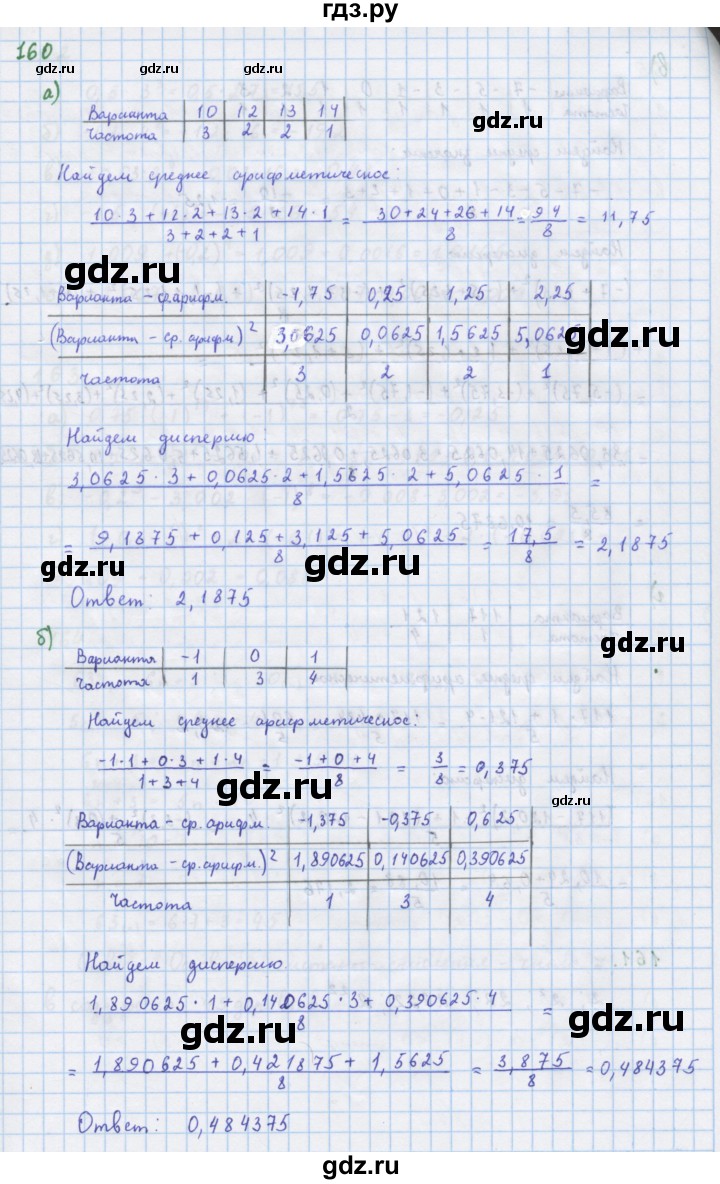 гдз.ру
160
gdz.ru gdz.ru
а)
Варианта 10 12 13 14
Частота 3 2 2 1
gdz.ru
Найдем среднее арифметическое:
10·3+12·2+13·2+14·1 / 3+2+2+1 = 30+24+26+14 / 8 = 94 / 8 = 11,75
gdz.ru gdz.ru
Варианта – ср.арифм. -1,75 0,25 1,25 2,25
(Варианта – ср.арифм)² 3,0625 0,0625 1,5625 5,0625
gdz.ru
Частота 3 2 2 1
Найдем дисперсию:
3,0625·3+0,0625·2+1,5625·2+5,0625·1 / 8 =
= 9,1875+0,125+3,125+5,0625 / 8 = 17,5 / 8 = 2,1875
gdz.ru gdz.ru
Ответ: 2,1875
gdz.ru
б)
Варианта -1 0 1
Частота 1 3 4
Найдем среднее арифметическое:
-1·1+0·3+1·4 / 1+3+4 = -1+0+4 / 8 = 3 / 8 = 0,375
gdz.ru gdz.ru
Варианта – ср.арифм. -1,375 -0,375 0,625
(Варианта – ср.арифм.)² 1,890625 0,140625 0,390625
Частота 1 3 4
Найдем дисперсию.
1,890625·1+0,140625·3+0,390625·4 / 8 =
gdz.ru gdz.ru
= 1,890625+0,421875+1,5625 / 8 = 3,875 / 8 = 0,484375
Ответ: 0,484375
gdz.ru
gdz.ru